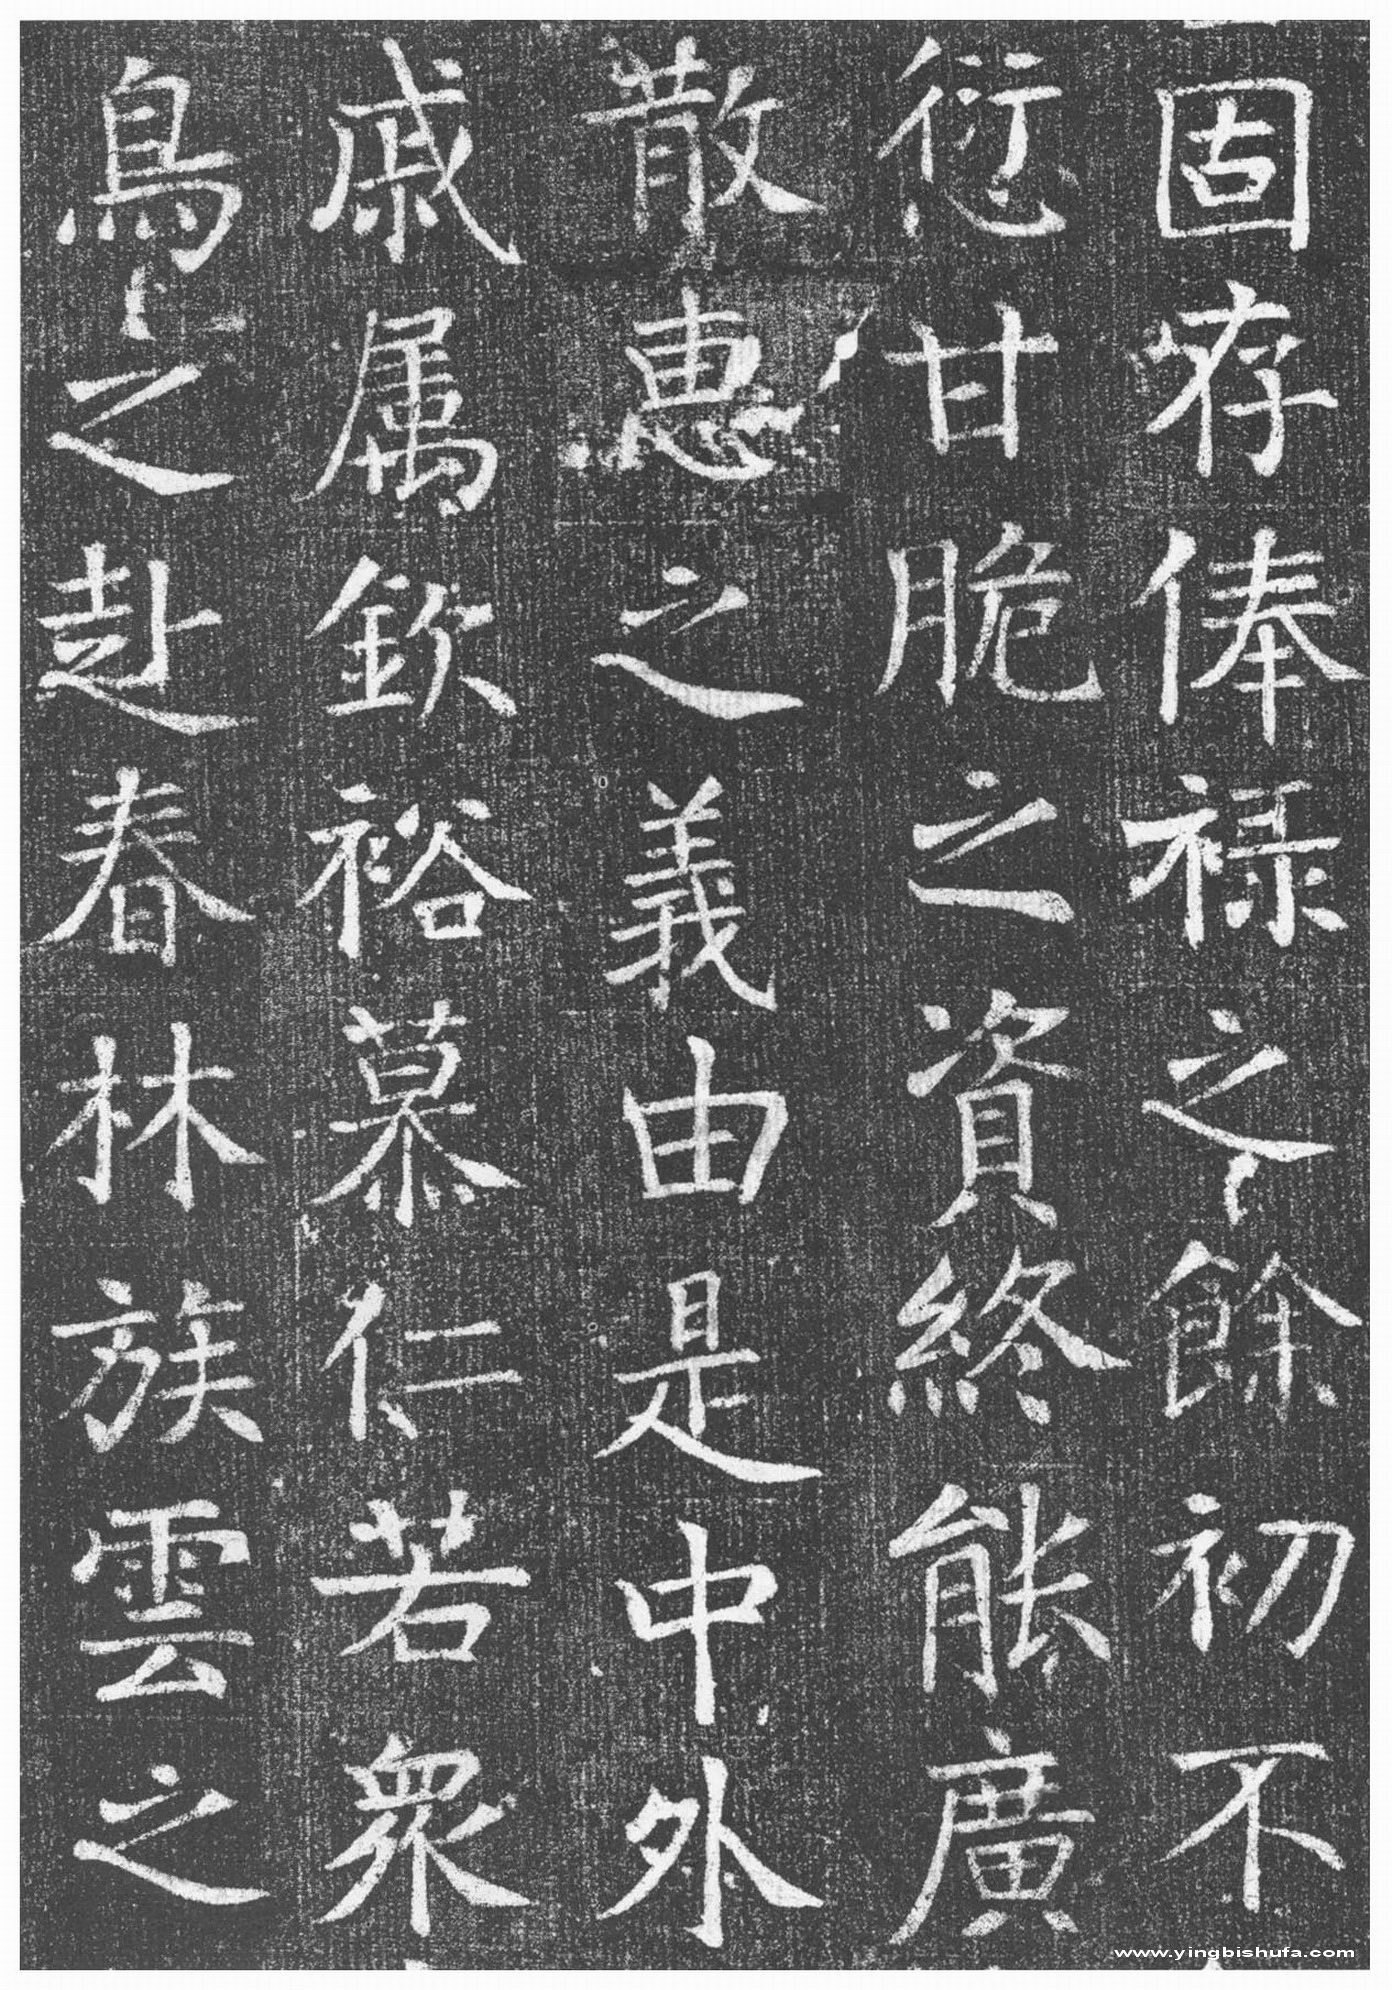 固存俸禄之餘初不
愆甘脆之資終能廣
散惠之義由是中外
戚属欽裕慕仁若衆
鳥之赴春林族雲之
www.yingbishufa.com